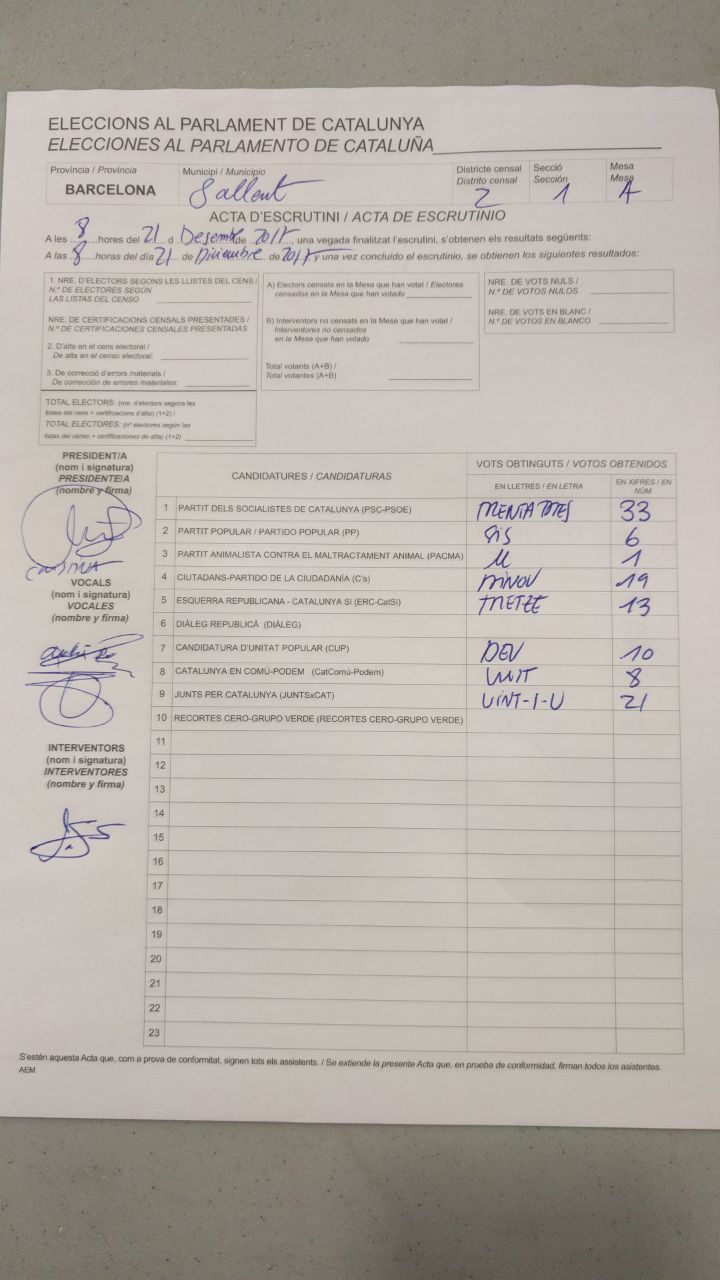 ELECCIONS AL PARLAMENT DE CATALUNYA
ELECCIONES AL PARLAMENTO DE CATALUÑA
Província / Provincia
BARCELONA
Municipi / Municipio
Sallent
Districte censal
Distrito censal
2
Secció
Sección
1
Mesa
Mesa
A
ACTA D'ESCRUTINI / ACTA DE ESCRUTINIO
A les 8 hores del 21 d Desembre de 2017, una vegada finalitzat l'escrutini, s'obtenen els resultats següents:
A las 8 horas del día 21 de Diciembre de 2017 y una vez concluido el escrutinio, se obtienen los siguientes resultados:
1. NRE. D'ELECTORS SEGONS LES LLISTES DEL CENS /
N.º DE ELECTORES SEGÚN
LAS LISTAS DEL CENSO
NRE. DE CERTIFICACIONS CENSALS PRESENTADES /
N.º DE CERTIFICACIONES CENSALES PRESENTADAS
2. D'alta en el cens electoral /
De alta en el censo electoral:
3. De correcció d'errors materials /
De corrección de errores materiales:
TOTAL ELECTORS: (nre. d'electors segons les
llistes del cens + certificacions d'alta) (1+2) /
TOTAL ELECTORES: (nº electores según las
listas del censo + certificaciones de alta) (1+2)
A) Electors censats en la Mesa que han votat / Electores
censados en la Mesa que han votado
B) Interventors no censats en la Mesa que han votat /
Interventores no censados
en la Mesa que han votado
Total votants (A+B) /
Total votantes (A+B)
NRE. DE VOTS NULS /
N.º DE VOTOS NULOS
NRE. DE VOTS EN BLANC /
N.º DE VOTOS EN BLANCO
PRESIDENT/A
(nom i signatura)
PRESIDENTE/A
(nombre y firma)
VOCALS
(nom i signatura)
VOCALES
(nombre y firma)
INTERVENTORS
(nom i signatura)
INTERVENTORES
(nombre y firma)
CANDIDATURES / CANDIDATURAS
VOTS OBTINGUTS / VOTOS OBTENIDOS
EN LLETRES / EN LETRA
EN XIFRES / EN NÚM.
1 PARTIT DELS SOCIALISTES DE CATALUNYA (PSC-PSOE) 33
2 PARTIT POPULAR / PARTIDO POPULAR (PP) SIS 6
3 PARTIT ANIMALISTA CONTRA EL MALTRACTAMENT ANIMAL (PACMA) U 1
4 CIUTADANS-PARTIDO DE LA CIUDADANÍA (C's) DINOU 19
5 ESQUERRA REPUBLICANA - CATALUNYA SÍ (ERC-CatSí) TRETZE 13
6 DIÀLEG REPUBLICÀ (DIÀLEG)
7 CANDIDATURA D'UNITAT POPULAR (CUP) DEU 10
8 CATALUNYA EN COMÚ-PODEM (CatComú-Podem) VUIT 8
9 JUNTS PER CATALUNYA (JUNTSxCAT) VINT-I-U 21
10 RECORTES CERO-GRUPO VERDE (RECORTES CERO-GRUPO VERDE)
11
12
13
14
15
16
17
18
19
20
21
22
23
S'estén aquesta Acta que, com a prova de conformitat, signen tots els assistents. / Se extiende la presente Acta que, en prueba de conformidad, firman todos los asistentes.
AEM